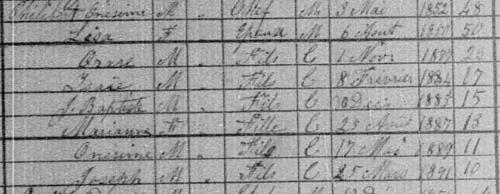 Onesime M " Chef M 3 Mai 1852 48
Lésa F " Epouse M 6 Aout 50
M " Fils C 1 Nov
Isaïe M " Fils C 8 Fevrier 1884 17
J. Baptiste M " Fils C Dec 1885 15
Marianne F " Fille C 25 Aout 1887 13
Onesime M " Fils C 17 Mai 1889 11
Joseph M " Fils C 25 Mars 1891 10